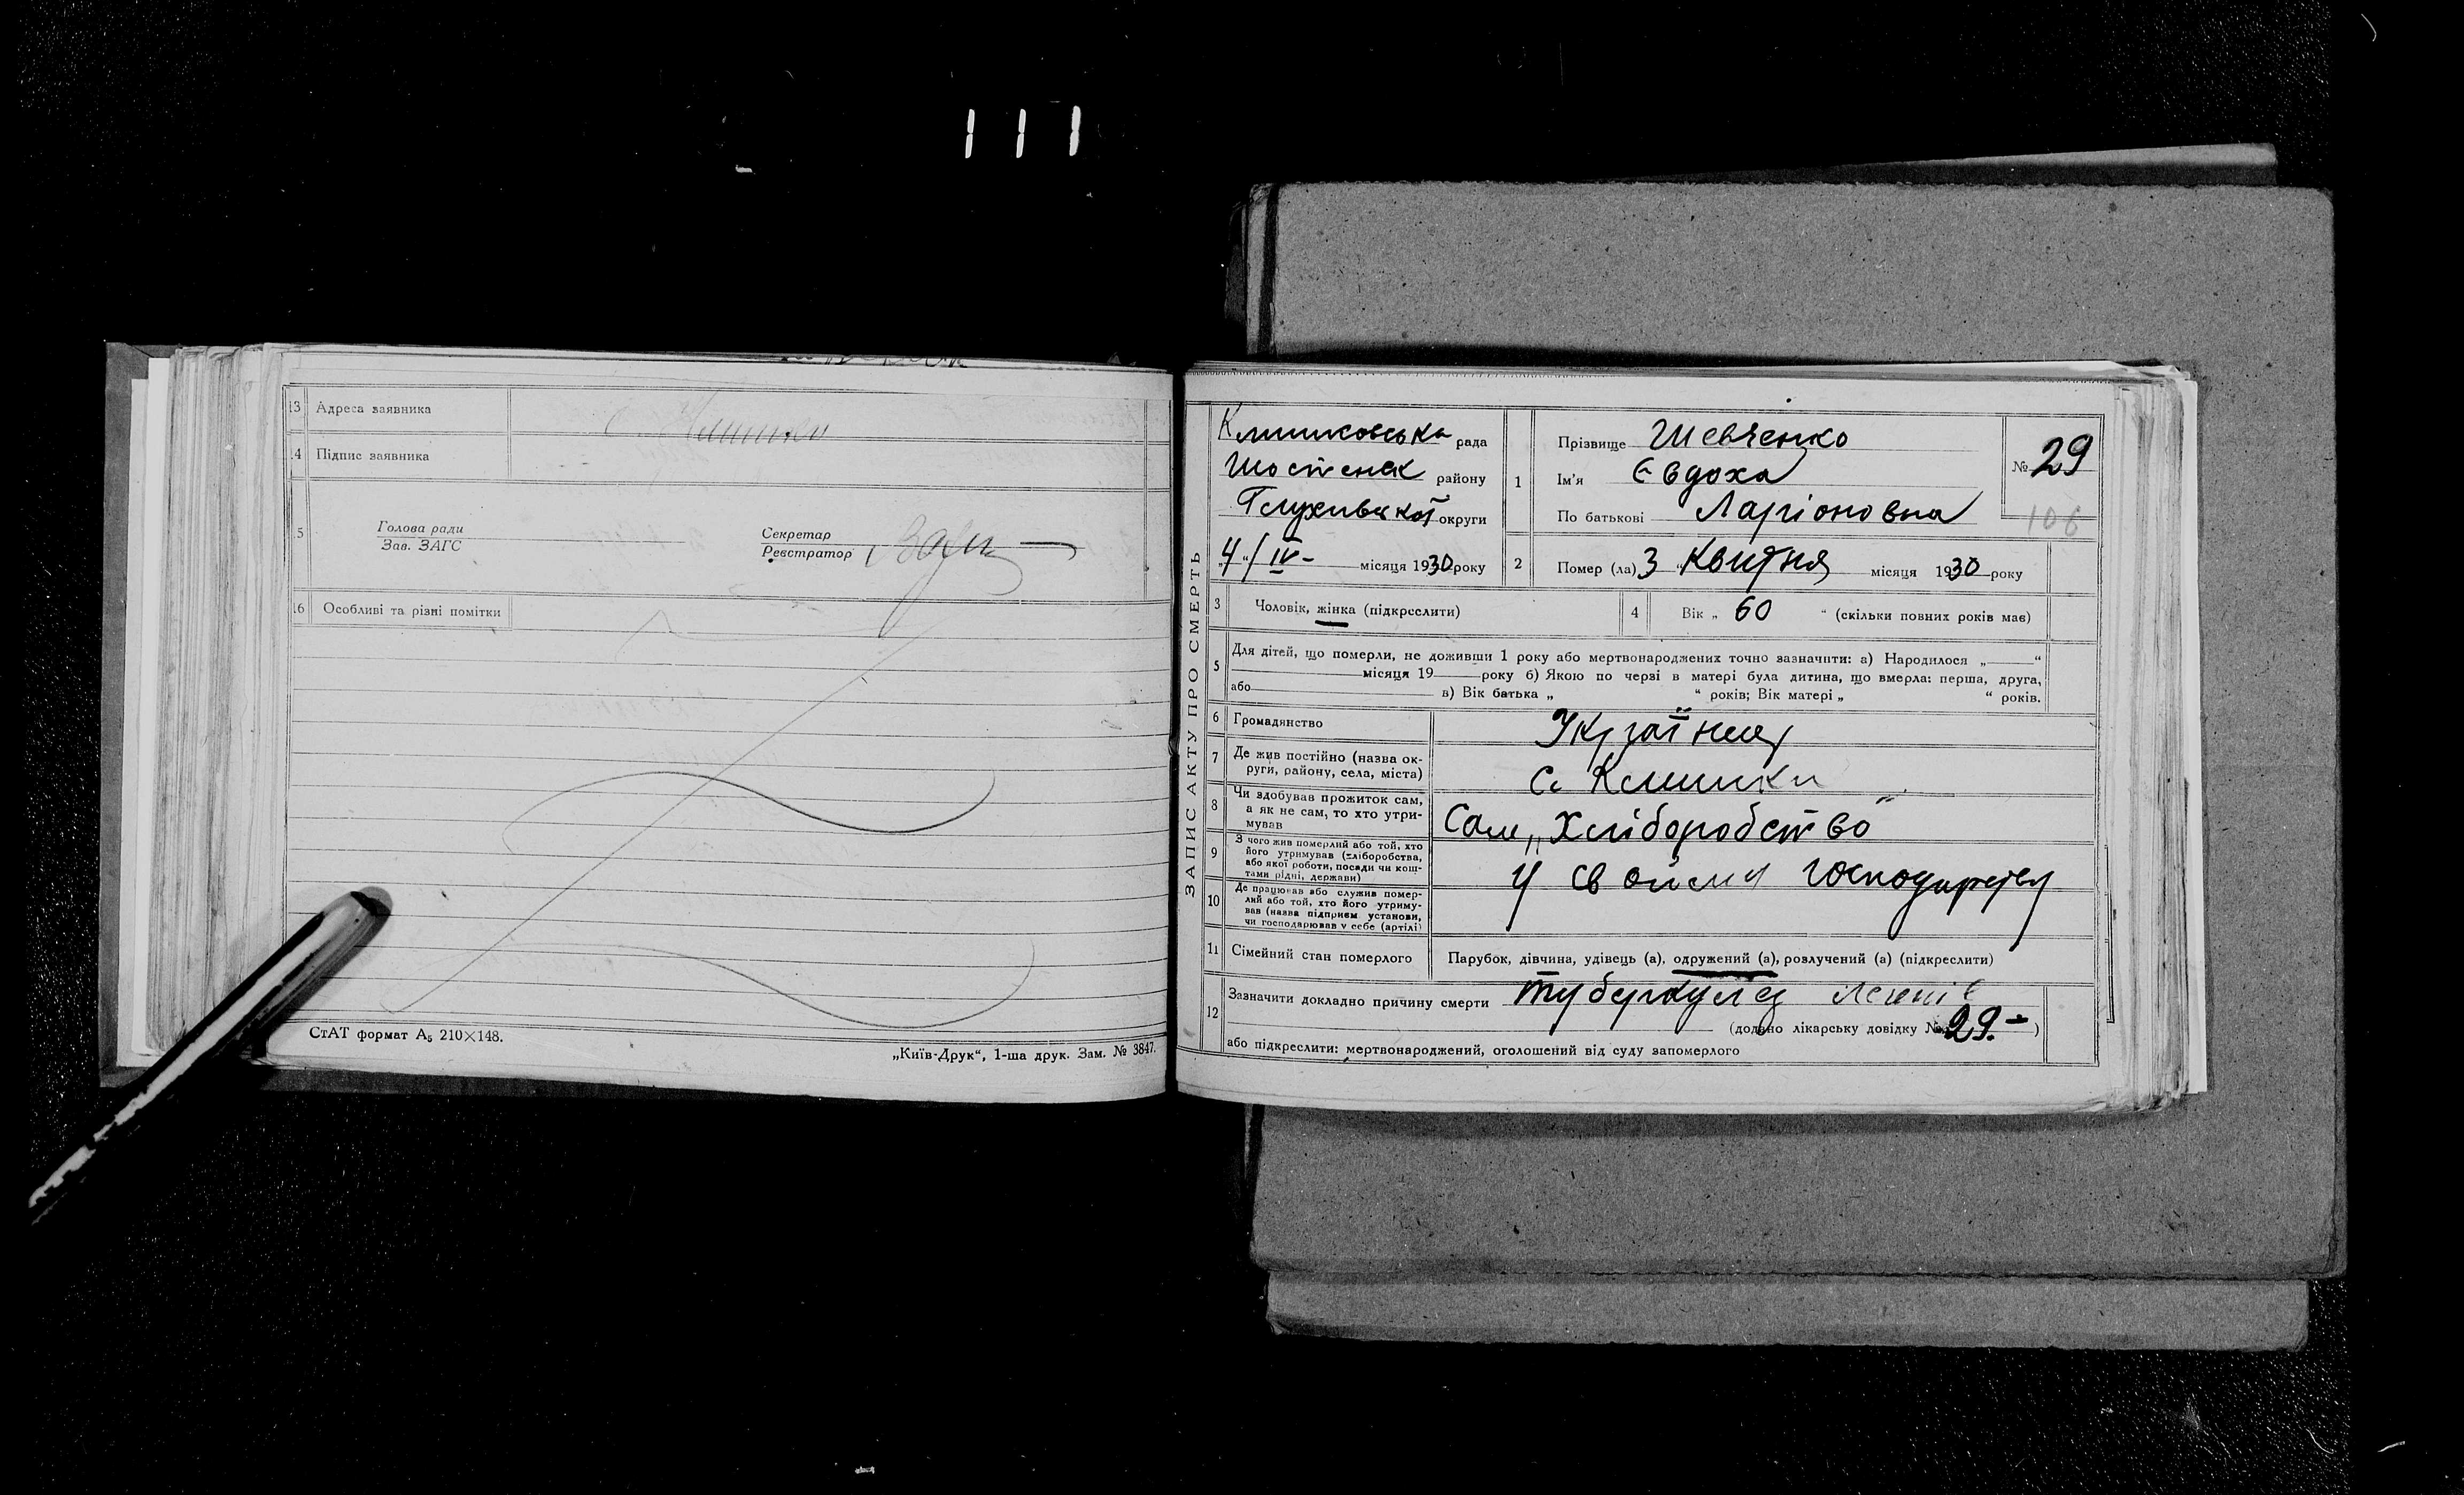 111
13 Адреса заявника
с. Клишки
14 Підпис заявника
15 Голова ради
Зав. ЗАГС
Секретар
Реєстратор
16 Особливі та різні помітки
СтАТ формат А5 210×148.
„Київ-Друк“, 1-ша друк. Зам. № 3847.
ЗАПИС АКТУ ПРО СМЕРТЬ
Клишковська рада
Шостенськ району
Глухівської округи
„4“/IV- місяця 1930 року
1 Прізвище Шевченко
Ім'я Євдоха
По батькові Ларіоновна
№ 29
106
2 Помер (ла) 3 „Квітня місяця 1930 року
3 Чоловік, жінка (підкреслити)
4 Вік „ 60 “ (скільки повних років має)
5 Для дітей, що померли, не доживши 1 року або мертвонароджених точно зазначити: а) Народилося „ “
місяця 19 року б) Якою по черзі в матері була дитина, що вмерла: перша, друга,
або в) Вік батька „ “ років; Вік матері „ “ років.
6 Громадянство
7 Де жив постійно (назва ок-
руги, району, села, міста)
с. Клишки
8 Чи здобував прожиток сам,
а як не сам, то хто утри-
мував
Сам „Хліборобство“
9 З чого жив померлий або той, хто
його утримував (хліборобства,
або якої роботи, посади чи кош-
тами рідні, держави)
у своїому господарстві
10 Де працював або служив помер-
лий або той, хто його утриму-
вав (назва підприєм. установи,
чи господарював у себе (артілі)
11 Сімейний стан померлого
Парубок, дівчина, удівець (а), одружений (а), розлучений (а) (підкреслити)
12 Зазначити докладно причину смерти туберкулез легенів
(додано лікарську довідку № 29.-)
або підкреслити: мертвонароджений, оголошений від суду запомерлого